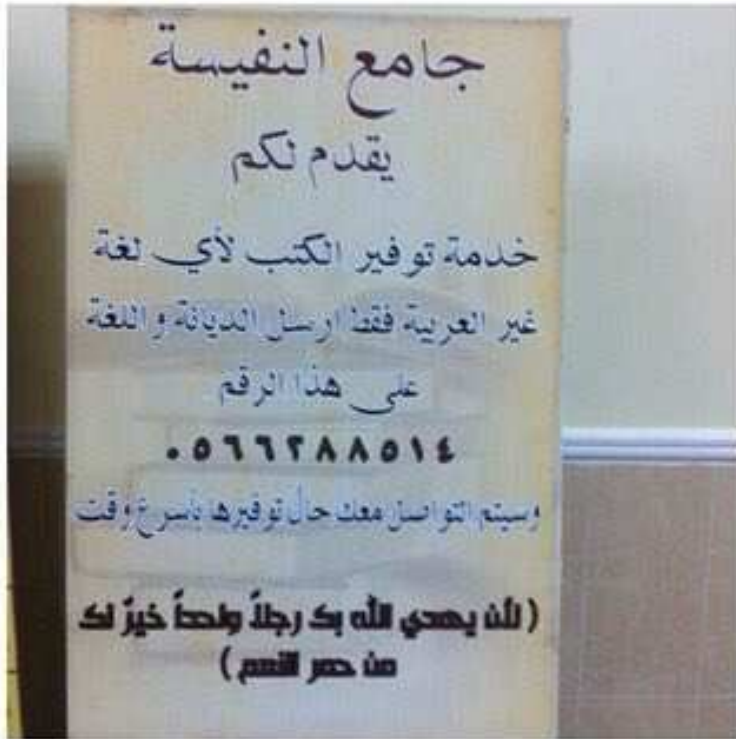 جامع النفيسة
يقدم لكم
خدمة توفير الكتب لأي لغة
غير العربية فقط ارسل الديانة واللغة
على هذا الرقم
٠٥٦٦٢٨٨٥١٤
وسيتم التواصل معك حال توفيرها بأسرع وقت
( لأن يهدي الله بك رجلاً واحداً خيرٌ لك
من حمر النعم )